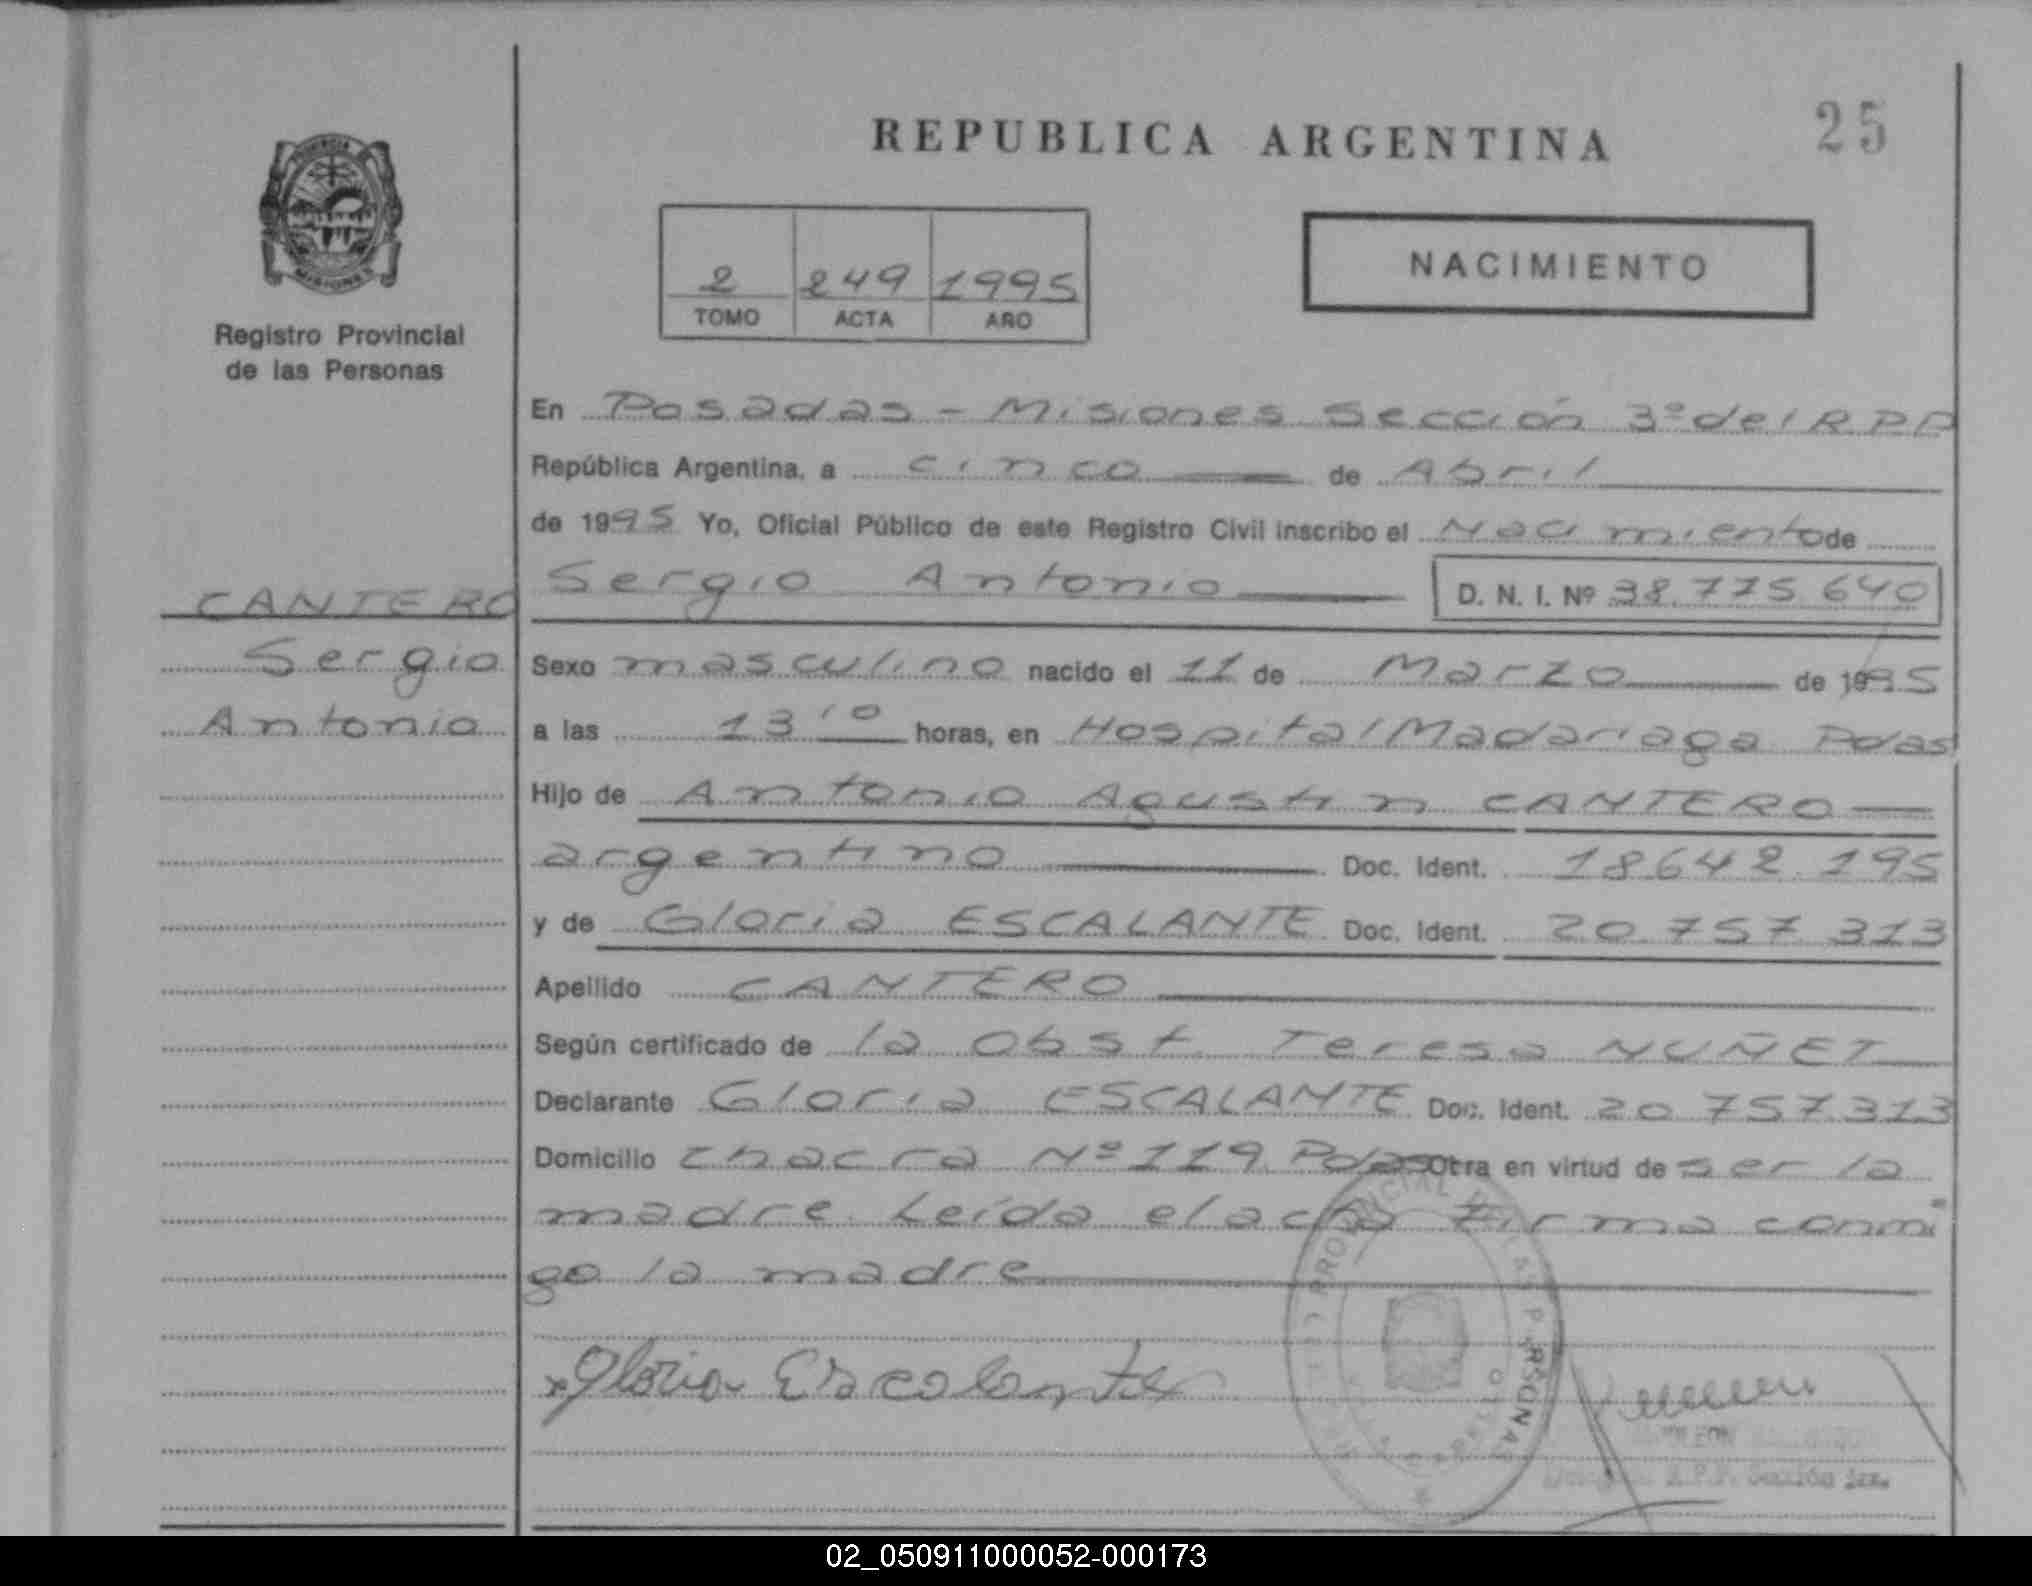 REPUBLICA ARGENTINA
25
PROVINCIA
MISIONES
Registro Provincial
de las Personas
2 249 1995
TOMO ACTA AÑO
NACIMIENTO
En Posadas - Misiones Sección 3º del RPP
República Argentina, a cinco de Abril
de 1995 Yo, Oficial Público de este Registro Civil inscribo el Nacimiento de
Sergio Antonio D. N. I. Nº 38.775.640
CANTERO
Sergio
Antonio
Sexo masculino nacido el 11 de Marzo de 1995
a las 13 10 horas, en Hospital Madariaga Pdas
Hijo de Antonio Agustin CANTERO
argentino Doc. Ident. 18642.195
y de Gloria ESCALANTE Doc. Ident. 20.757.313
Apellido CANTERO
Según certificado de la Obst. Teresa NUÑET
Declarante Gloria ESCALANTE Doc. Ident. 20 757.313
Domicilio Chacra Nº 119 Pdas Otra en virtud de ser la
madre. Leída el acta Firma conmi
go la madre
Gloria Escalante
R.P.P. Sección 3ra.
02_050911000052-000173